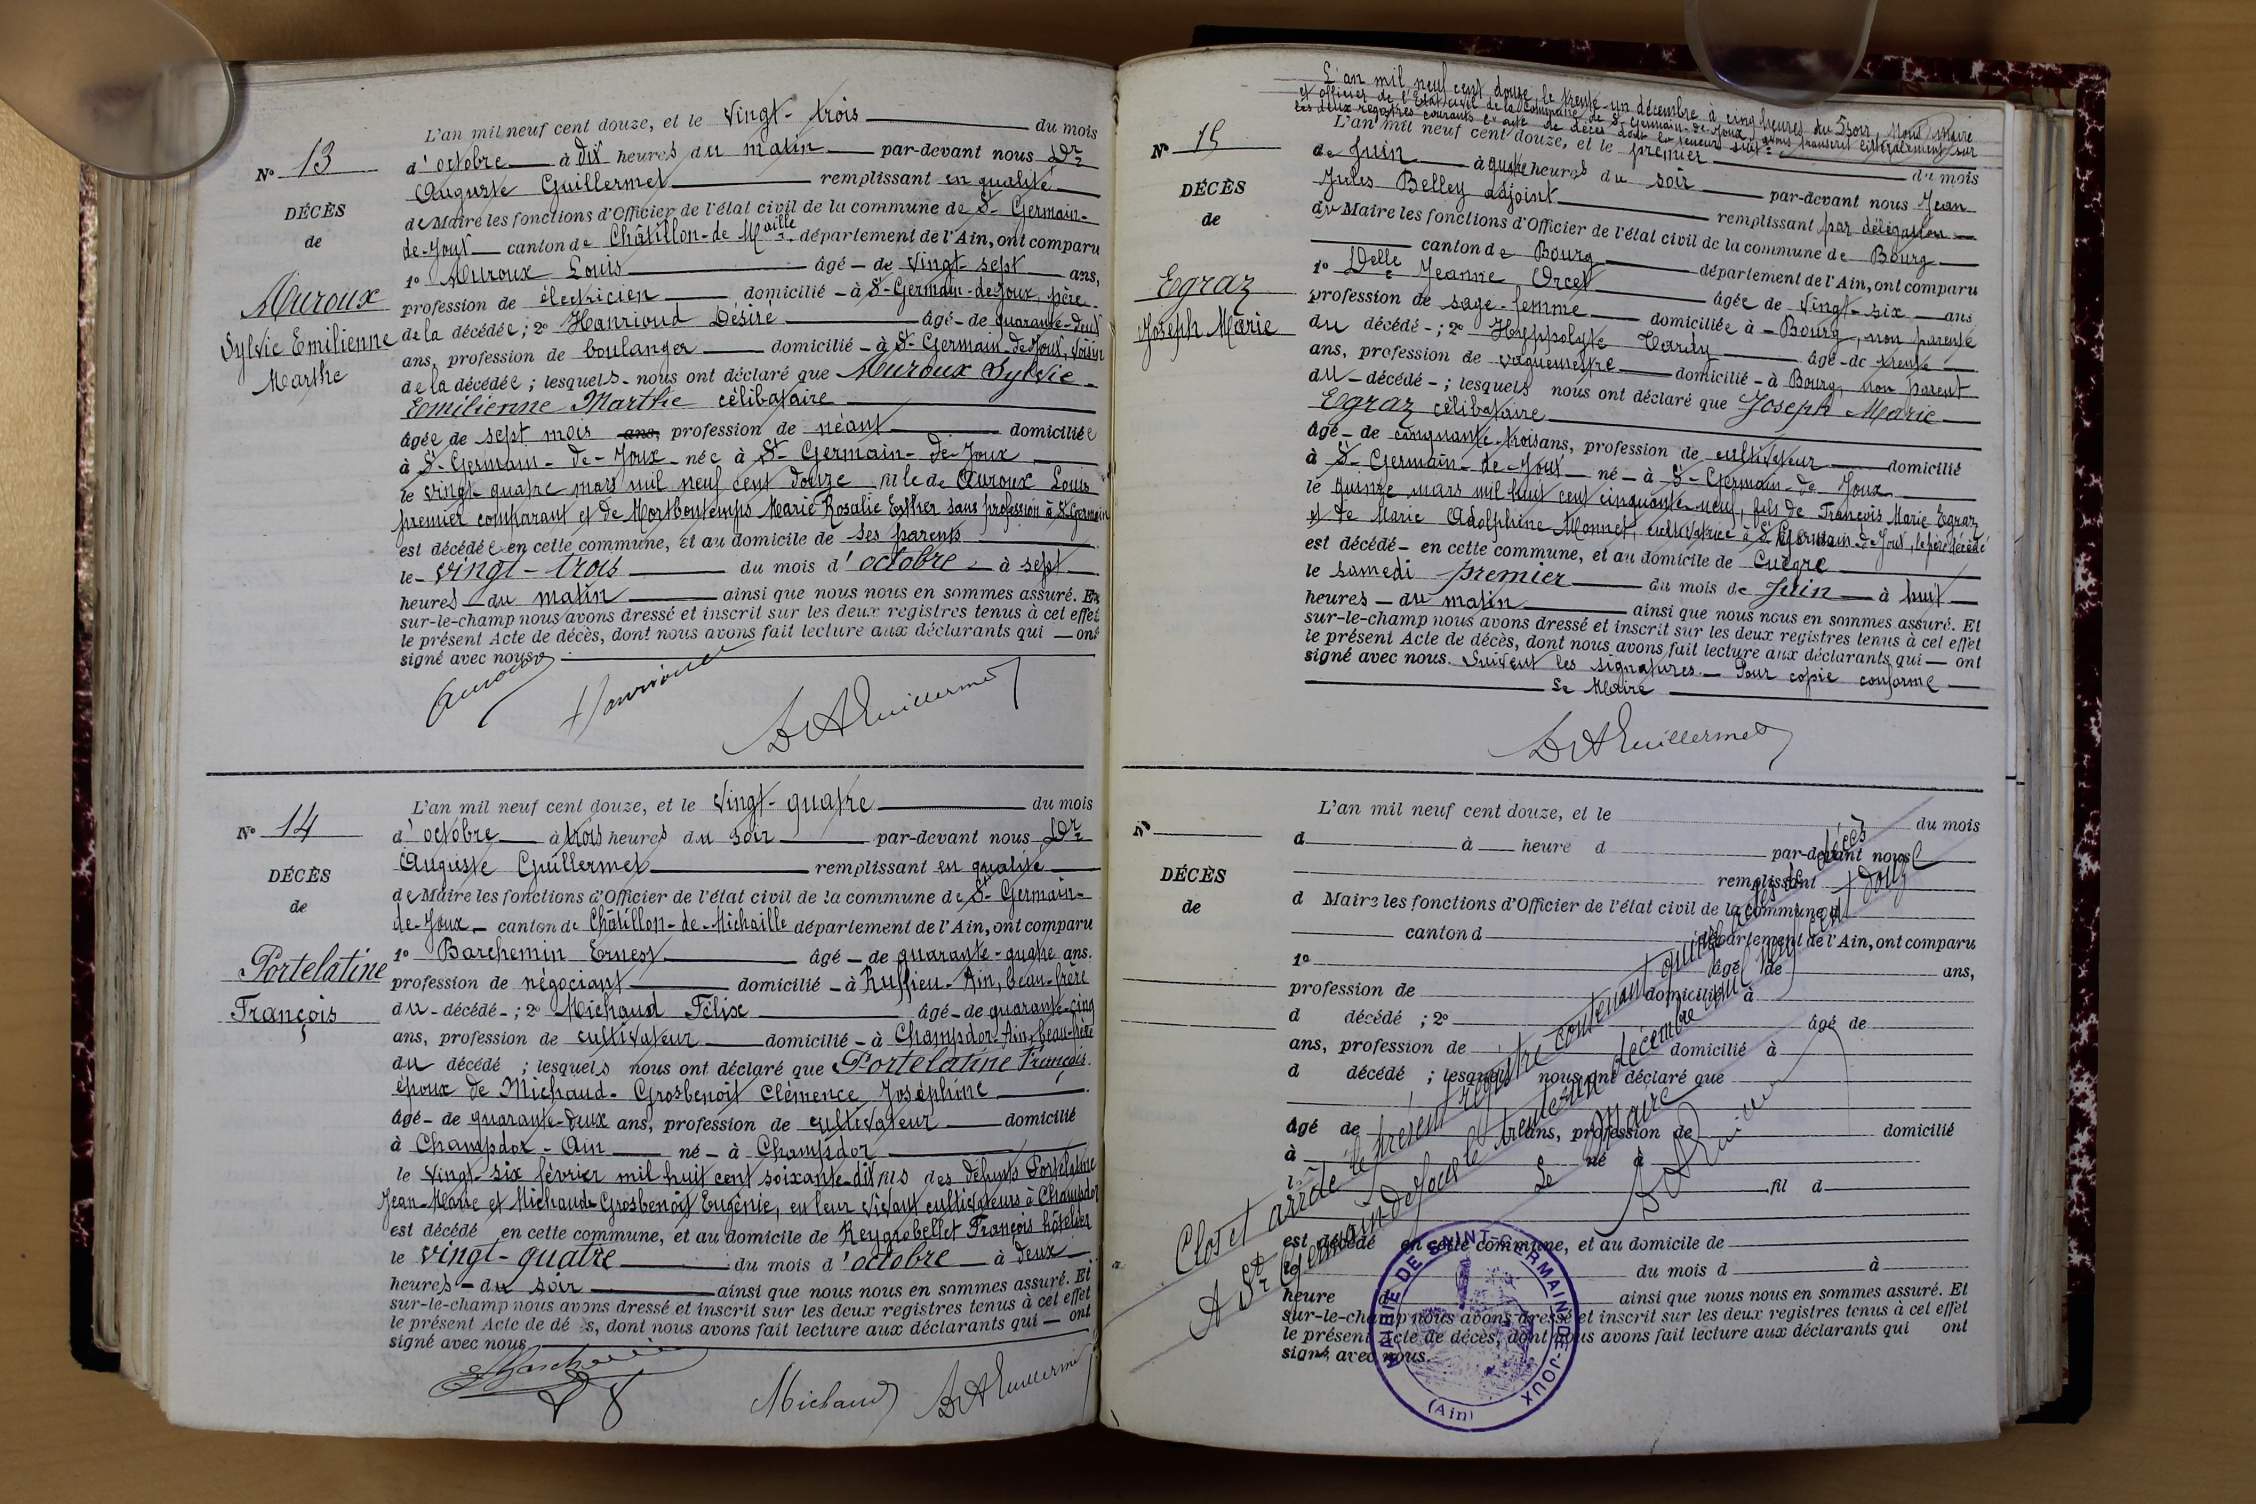 L'an mil neuf cent douze, et le vingt-trois du mois
N° 13
d'octobre à dix heures du matin par-devant nous Dr
Auguste Guillermet remplissant en qualité
DÉCÈS
de Maire les fonctions d'Officier de l'état civil de la commune de St-Germain-
de
de-Joux canton de Châtillon-de Maille département de l'Ain, ont comparu
1° Auroux Louis âgé de vingt-sept ans,
Auroux
profession de électricien domicilié à St-Germain-de-Joux, père
Sylvie Emilienne
de la décédée; 2° Hanrioud Désiré âgé de quarante-deux
Marthe
ans, profession de boulanger domicilié à St-Germain-de-Joux, voisin
de la décédée; lesquels nous ont déclaré que Auroux Sylvie
Emilienne Marthe célibataire
âgée de sept mois ans, profession de néant domiciliée
à St-Germain-de-Joux née à St-Germain-de-Joux
le vingt-quatre mars mil neuf cent douze fille de Auroux Louis
premier comparant et de Mortbontemps Marie Rosalie Esther sans profession à St Germain
est décédée en cette commune, et au domicile de ses parents
le vingt-trois du mois d'octobre à sept
heures du matin ainsi que nous nous en sommes assuré. Et
sur-le-champ nous avons dressé et inscrit sur les deux registres tenus à cet effet
le présent Acte de décès, dont nous avons fait lecture aux déclarants qui ont
signé avec nous.
Auroux Hanrioud Dr A Guillermet
L'an mil neuf cent douze, et le vingt-quatre du mois
N° 14
d'octobre à trois heures du soir par-devant nous Dr
Auguste Guillermet remplissant en qualité
DÉCÈS
de Maire les fonctions d'Officier de l'état civil de la commune de St-Germain-
de
de-Joux canton de Châtillon-de-Michaille département de l'Ain, ont comparu
1° Barchemin Ernest âgé de quarante-quatre ans.
Portelatine
profession de négociant domicilié à Ruffieu-Ain, beau-frère
François
du décédé; 2° Michaud Félix âgé de quarante-cinq
ans, profession de cultivateur domicilié à Champdor-Ain, beau-frère
du décédé; lesquels nous ont déclaré que Portelatine François
époux de Michaud-Grosbenoit Clémence Joséphine
âgé de quarante-deux ans, profession de cultivateur domicilié
à Champdor-Ain né à Champdor
le vingt-six février mil huit cent soixante-dix fils des défunts Portelatine
Jean-Marie et Michaud-Grosbenoît Eugénie, en leur vivant cultivateurs à Champdor
est décédé en cette commune, et au domicile de Reygrobellet François hôtelier
le vingt-quatre du mois d'octobre à deux
heures du soir ainsi que nous nous en sommes assuré. Et
sur-le-champ nous avons dressé et inscrit sur les deux registres tenus à cet effet
le présent Acte de décès, dont nous avons fait lecture aux déclarants qui ont
signé avec nous.
Barchemin Michaud Dr A Guillermet
L'an mil neuf cent douze le trente-un décembre à cinq heures du soir, Nous Maire
et officier de l'Etat civil de la commune de St Germain-de-Joux avons transcrit littéralement sur
les deux registres courants l'acte de décès dont la teneur suit:
L'an mil neuf cent douze, et le premier du mois
N° 15
de Juin à quatre heures du soir par-devant nous Jean
Jules Belley adjoint remplissant par délégation
DÉCÈS
du Maire les fonctions d'Officier de l'état civil de la commune de Bourg
de
canton de Bourg département de l'Ain, ont comparu
1° Delle Jeanne Orcet âgée de vingt-six ans
Egraz
profession de sage-femme domiciliée à Bourg, non parente
Joseph Marie
du décédé; 2° Hyppolyte Tardy âgé de trente
ans, profession de vaguemestre domicilié à Bourg, non parent
du décédé; lesquels nous ont déclaré que Joseph Marie
Egraz célibataire
âgé de cinquante-trois ans, profession de cultivateur domicilié
à St-Germain-de-Joux né à St-Germain-de-Joux
le quinze mars mil huit cent cinquante-neuf, fils de François Marie Egraz
et de Marie Adolphine Monnet, cultivatrice à St Germain-de-Joux, le père décédé
est décédé en cette commune, et au domicile de Cuègre
le samedi premier du mois de Juin à huit
heures du matin ainsi que nous nous en sommes assuré. Et
sur-le-champ nous avons dressé et inscrit sur les deux registres tenus à cet effet
le présent Acte de décès, dont nous avons fait lecture aux déclarants qui ont
signé avec nous. Suivent les signatures. Pour copie conforme
Le Maire
Dr A Guillermet
L'an mil neuf cent douze, et le du mois
N°
d à heure d par-devant nous
remplissant
DÉCÈS
d Maire les fonctions d'Officier de l'état civil de la commune d
de
canton d département de l'Ain, ont comparu
1° âgé de ans,
profession de domicilié à
d décédé ; 2° âgé de
ans, profession de domicilié à
d décédé ; lesquels nous ont déclaré que
âgé de ans, profession de domicilié
à né à
l fil d
est décédé en cette commune, et au domicile de
le du mois d à
heure ainsi que nous nous en sommes assuré. Et
sur-le-champ nous avons dressé et inscrit sur les deux registres tenus à cet effet
le présent Acte de décès, dont nous avons fait lecture aux déclarants qui ont
signé avec nous.
Clos et arrêté le présent registre contenant quinze actes de décès
A St Germain de Joux le trente un décembre mil neuf cent douze
Le Maire
Dr A Guillermet
MAIRIE DE SAINT-GERMAIN-DE-JOUX
(Ain)